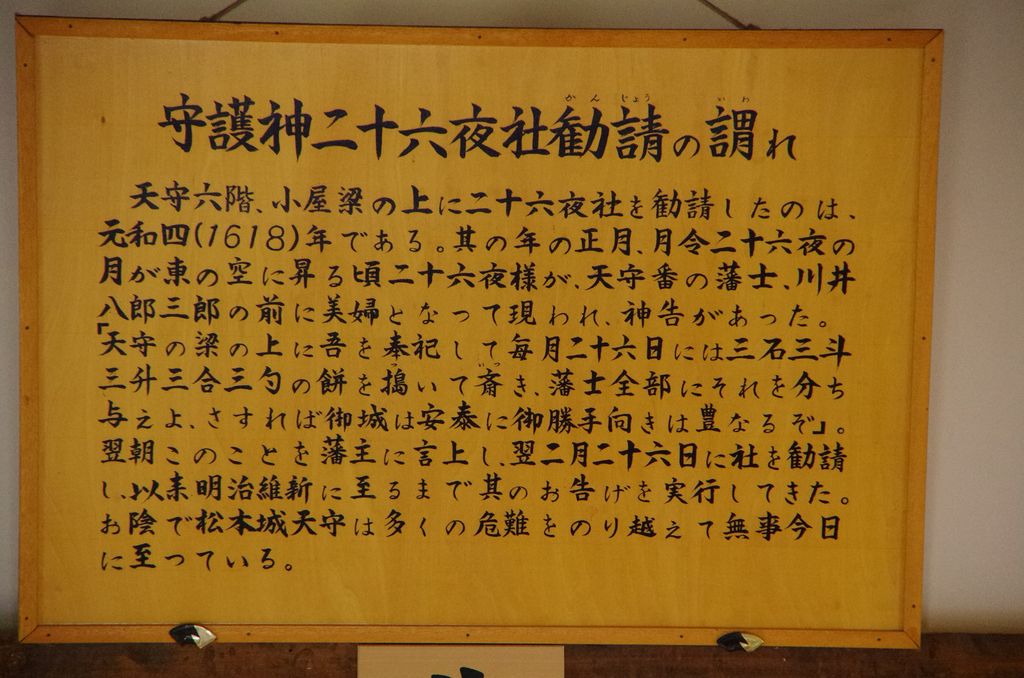 守護神二十六夜社勧請の謂れ
かんじょう いわ
天守六階、小屋梁の上に二十六夜社を勧請したのは、
元和四(1618)年である。其の年の正月、月令二十六夜の
月が東の空に昇る頃二十六夜様が、天守番の藩士、川井
八郎三郎の前に美婦となって現われ、神告があった。
「天守の梁の上に吾を奉祀して毎月二十六日には三石三斗
三升三合三勺の餅を搗いて斎き、藩士全部にそれを分ち
与えよ、さすれば御城は安泰に御勝手向きは豊なるぞ」。
翌朝このことを藩主に言上し、翌二月二十六日に社を勧請
し、以来明治維新に至るまで其のお告げを実行してきた。
お陰で松本城天守は多くの危難をのり越えて無事今日
に至っている。